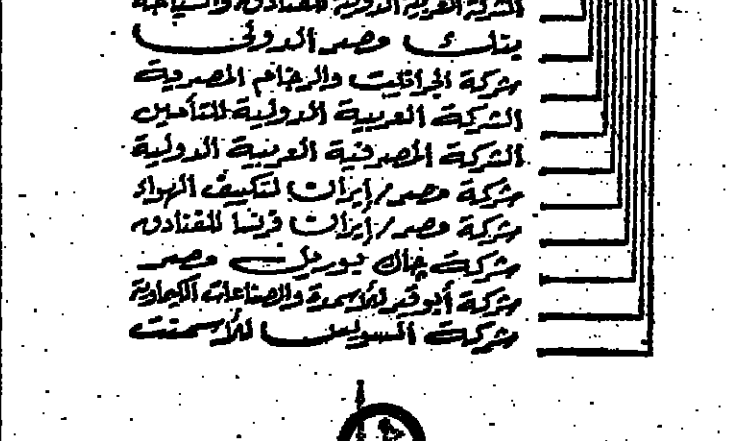 الشركة العربية الدولية للفنادق والسياحة
بنك مصر الدولى
شركة الجرانيت والرخام المصرية
الشركة العربية الدولية للتأمين
الشركة المصرفية العربية الدولية
شركة مصر/إيران لتكييف الهواء
شركة مصر/إيران فرنسا للفنادق
شركة چاك بوريل مصر
شركة أبوقير للأسمدة والصناعات الكيماوية
شركة السويس للأسمنت